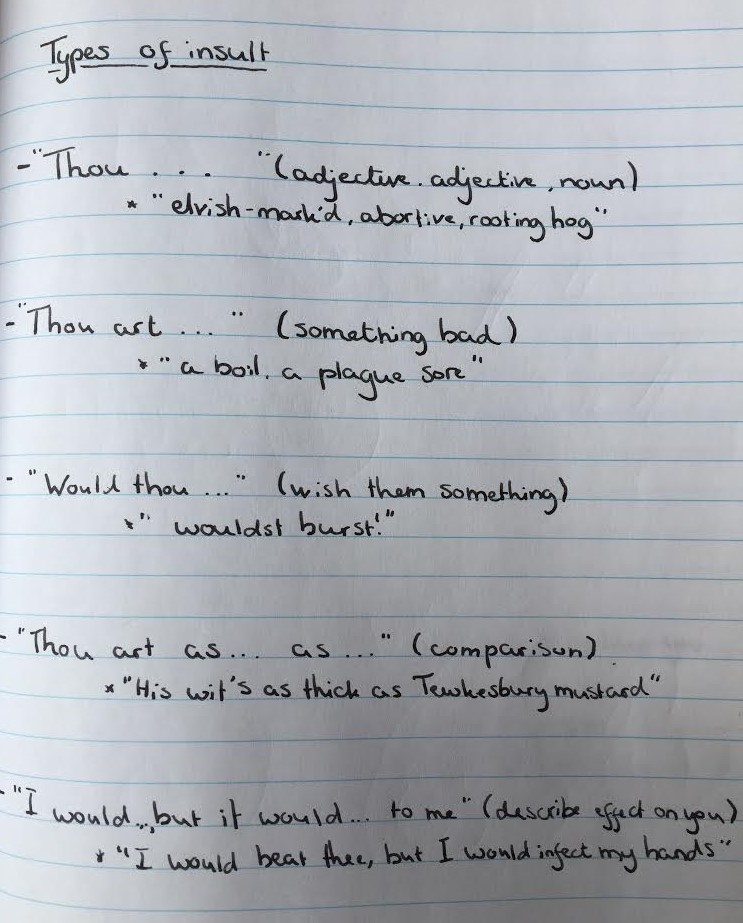 Types of insult
- "Thou . . . " (adjective, adjective, noun)
* "elvish-mark'd, abortive, rooting hog"
- "Thou art ... " (something bad)
* "a boil, a plague sore"
- "Would thou ..." (wish them something)
* " wouldst burst!"
- "Thou art as... as ..." (comparison)
* "His wit's as thick as Tewkesbury mustard"
- "I would..., but it would... to me" (describe effect on you)
* "I would beat thee, but I would infect my hands"